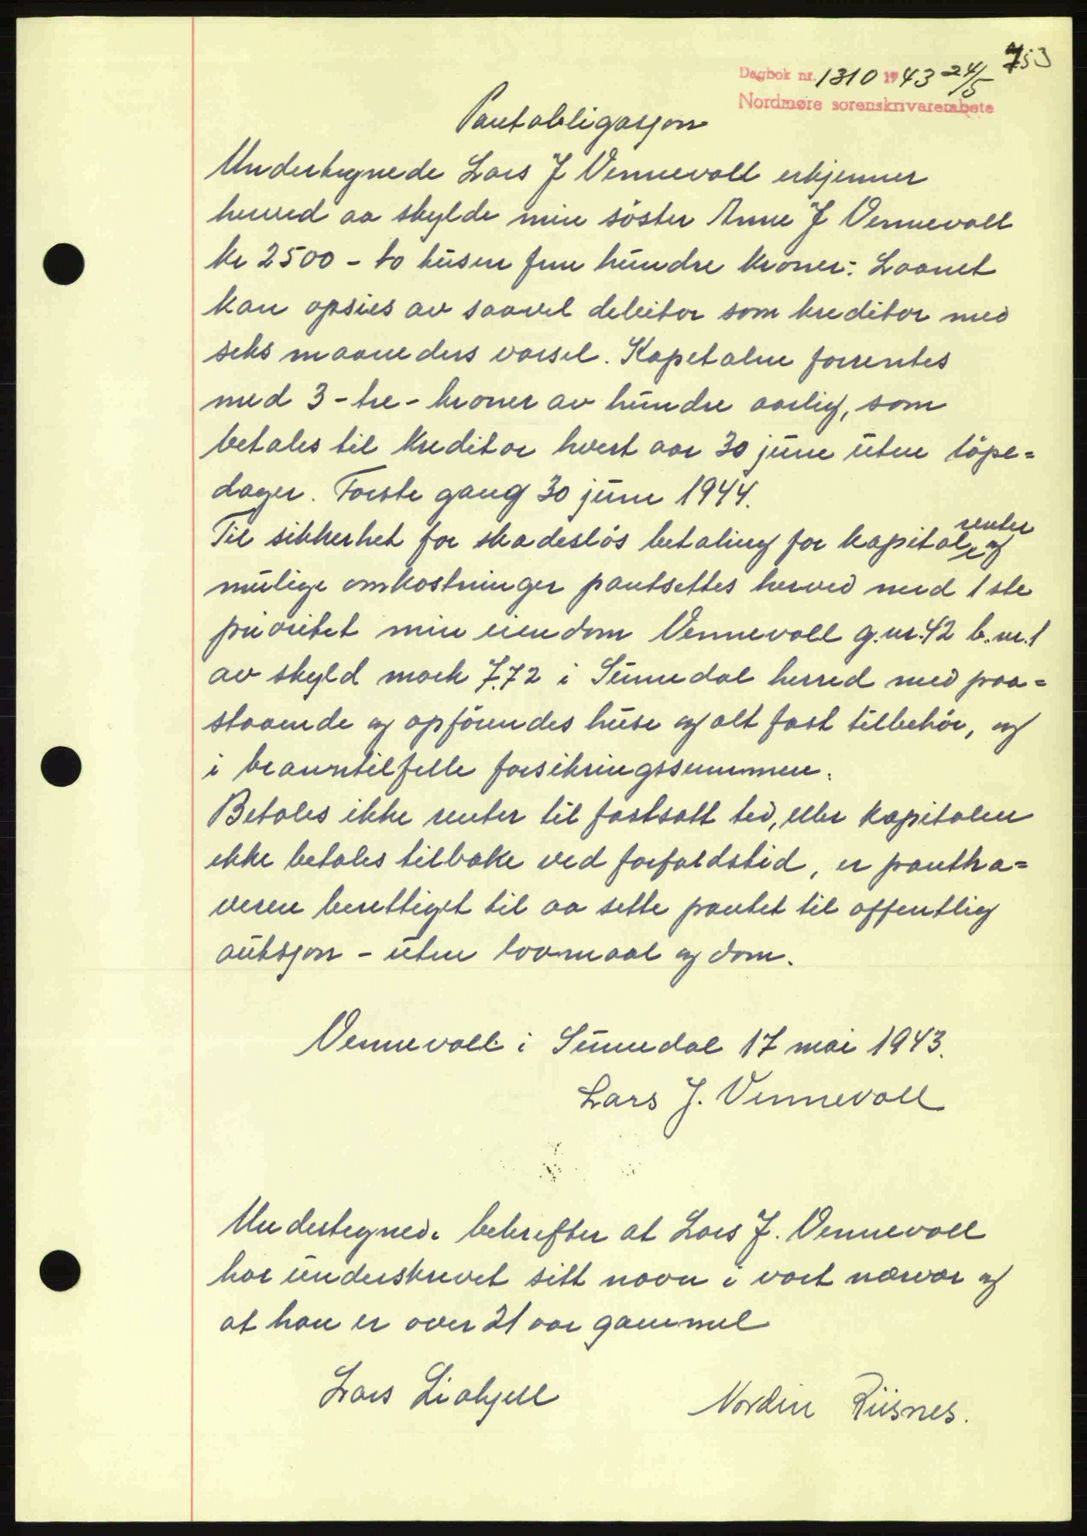 753
Dagbok nr. 1310 1943 24/5
Nordmøre sorenskrivarembete
Pantobligasjon
Undertegnede Lars J Vennevoll erkjenner
herved aa skylde min søster Anne J Vennevoll
kr 2500 - to tusen fem hundre kroner. Laanet
kan opsies av saavel debitor som kreditor med
seks maaneders varsel. Kapitalen forrentes
med 3 - tre - kroner av hundre aarlig, som
betales til kreditor hvert aar 30 juni uten løpe=
dager. Første gang 30 juni 1944.
Til sikkerhet for skadesløs betaling for kapital, renter og
mulige omkostninger pantsettes herved med 1ste
prioritet min eiendom Vennevoll g.nr. 42 b.nr. 1
av skyld mark 7.72 i Sunndal herred med paa=
staaende og opførendes huse og alt fast tilbehør, og
i branntilfelle forsikringssummen.
Betales ikke renter til fastsatt tid, eller kapitalen
ikke betales tilbake ved forfaldstid, er pantha=
veren berettiget til aa sette pantet til offentlig
auksjon - uten lovmaal og dom.
Vennevoll i Sunndal 17 mai 1943.
Lars J. Vennevoll
Undertegnede bekrefter at Lars J. Vennevoll
har underskrevet sitt navn i vort nærvær og
at han er over 21 aar gammel
Lars Liahjell
Nordin Riisnes.